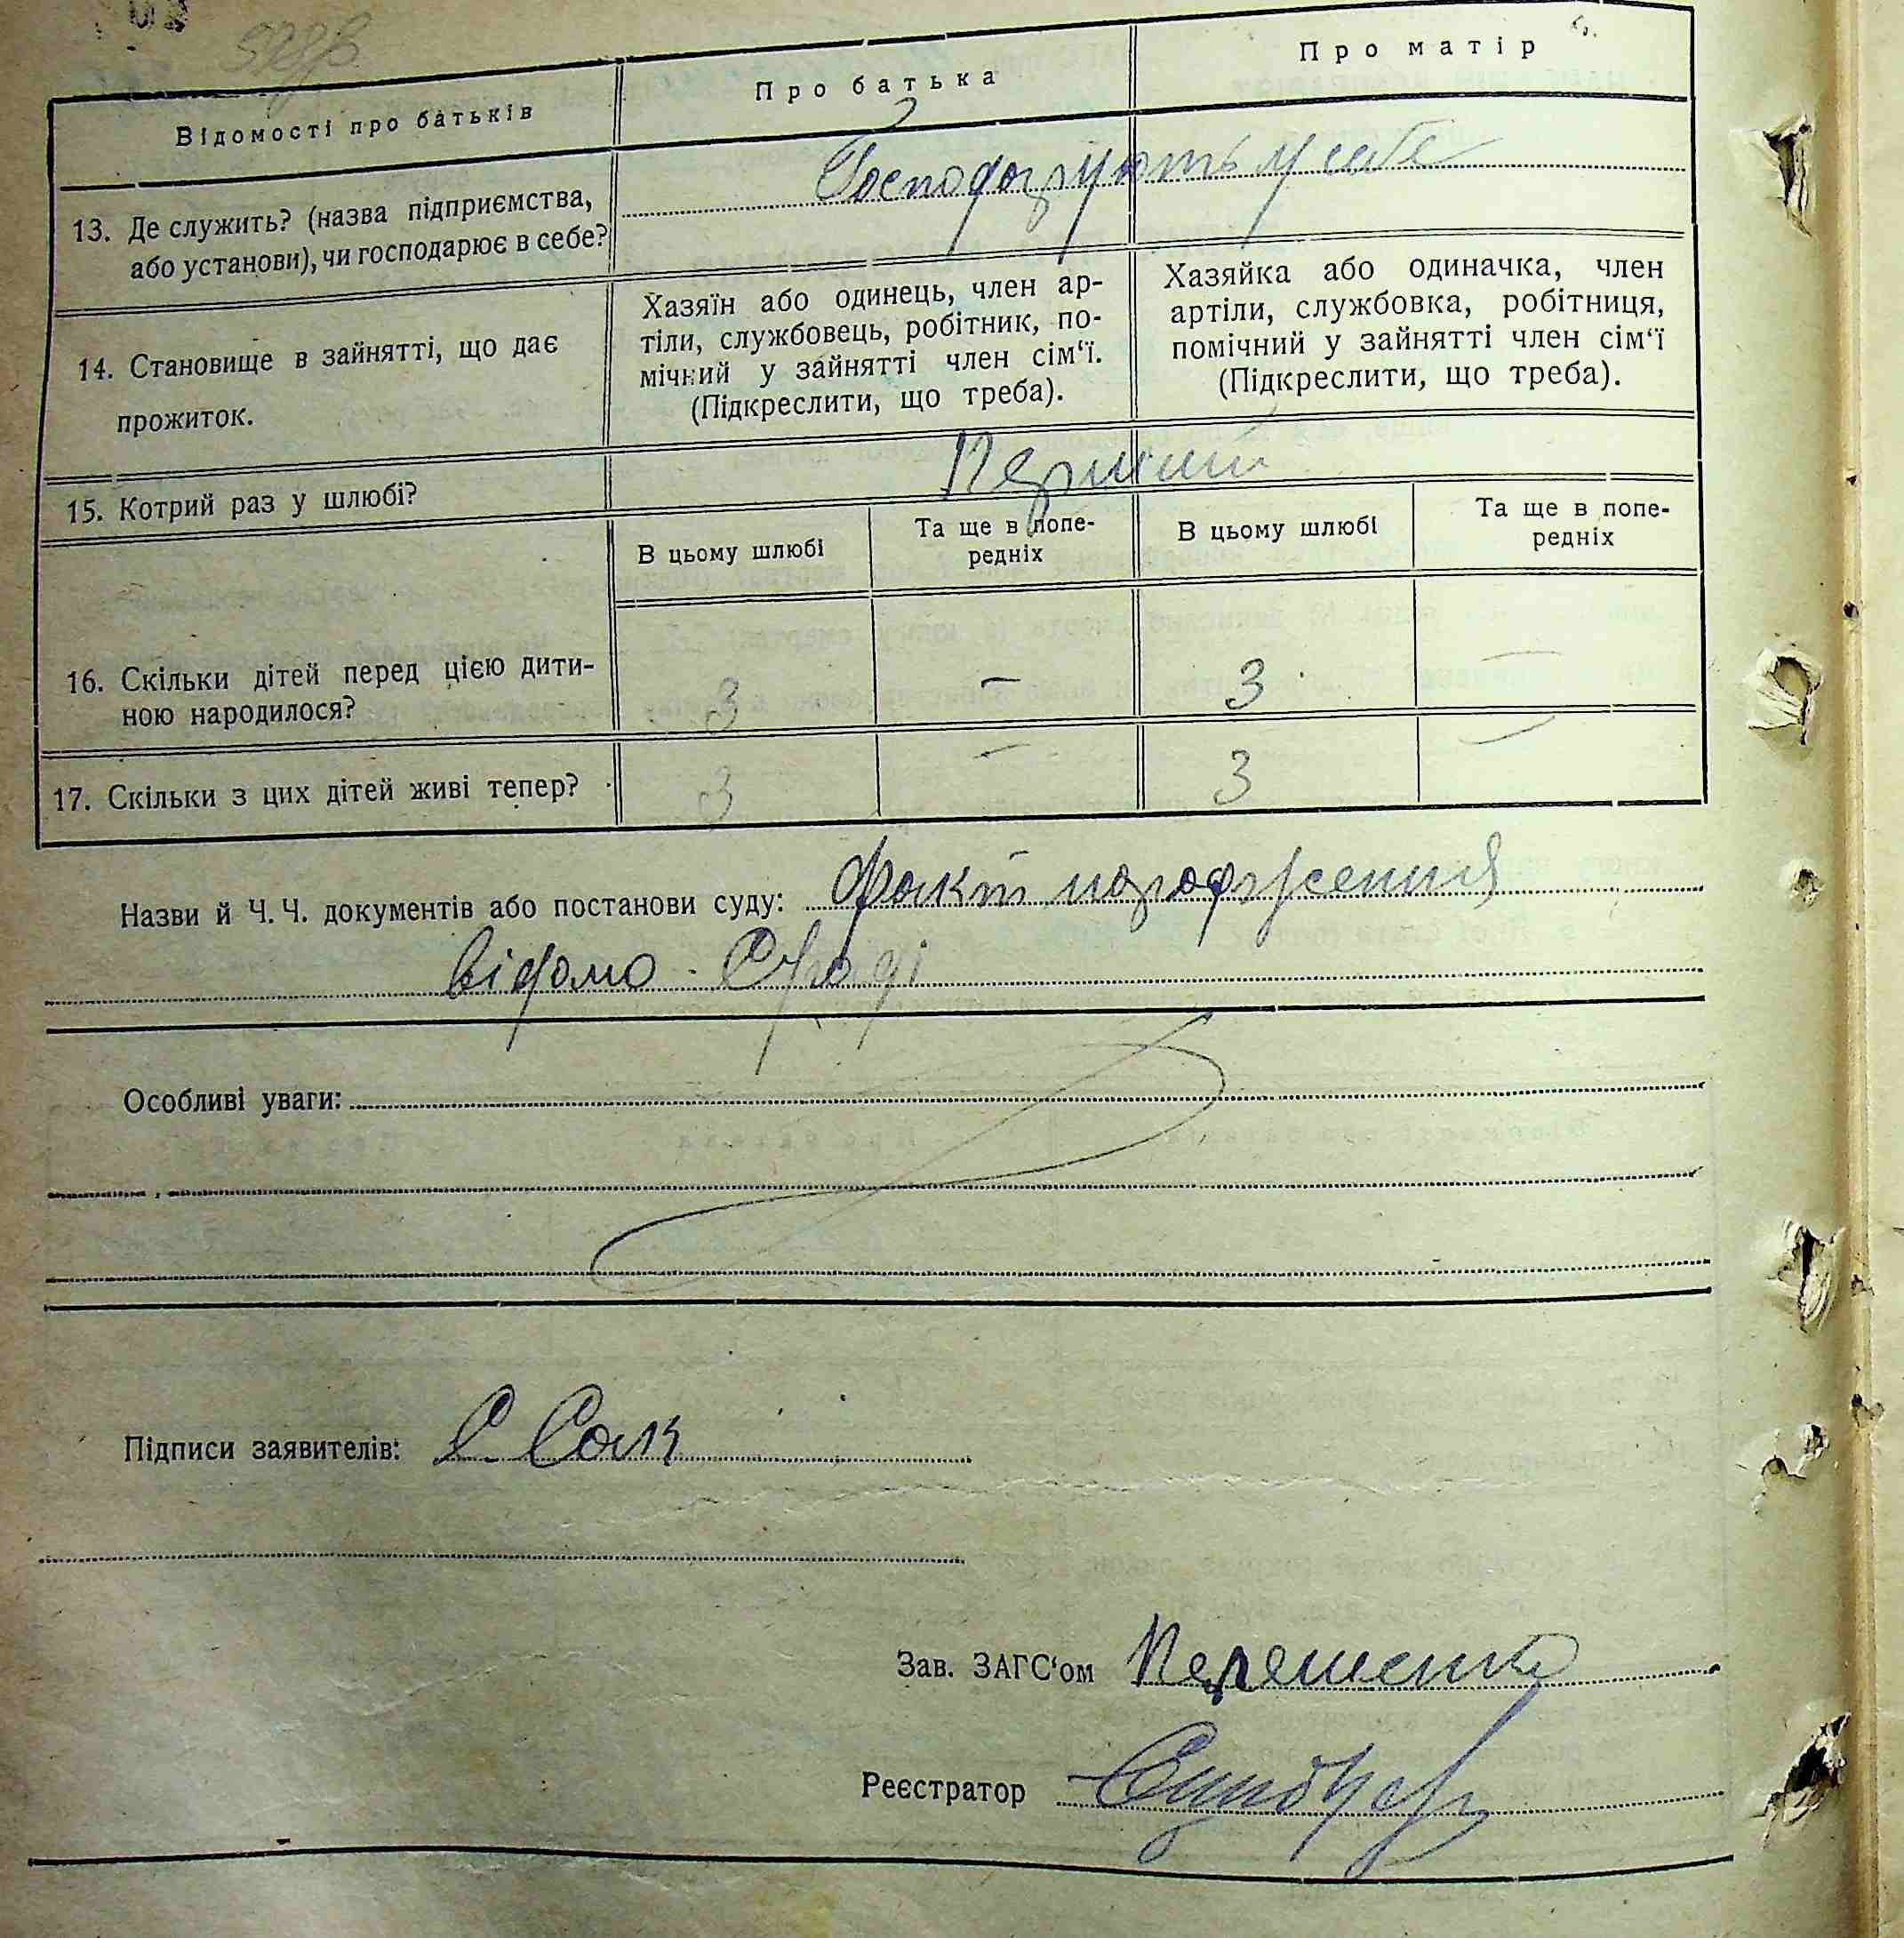 Відомості про батьків
Про батька
Про матір
13. Де служить? (назва підприємства,
або установи), чи господарює в себе?
Господарують у себе
14. Становище в зайнятті, що дає
прожиток.
Хазяїн або одинець, член ар-
тіли, службовець, робітник, по-
мічний у зайнятті член сім‘ї.
(Підкреслити, що треба).
Хазяйка або одиначка, член
артіли, службовка, робітниця,
помічний у зайнятті член сім‘ї
(Підкреслити, що треба).
15. Котрий раз у шлюбі?
Перший
В цьому шлюбі
Та ще в попе-
редніх
В цьому шлюбі
Та ще в попе-
редніх
16. Скільки дітей перед цією дити-
ною народилося?
3 – 3 –
17. Скільки з цих дітей живі тепер?
3 – 3 –
Назви й Ч. Ч. документів або постанови суду: Факт народження
відомо С/раді
Особливі уваги:
Підписи заявителів: С Сак
Зав. ЗАГС‘ом
Реєстратор